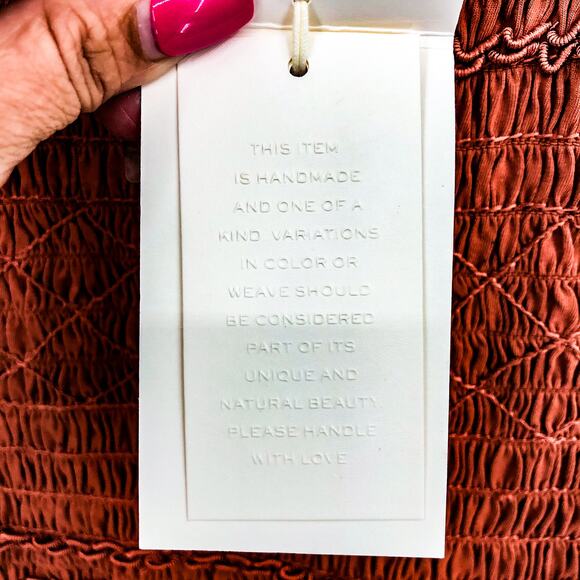 THIS ITEM
IS HANDMADE
AND ONE OF A
KIND. VARIATIONS
IN COLOR OR
WEAVE SHOULD
BE CONSIDERED
PART OF ITS
UNIQUE AND
NATURAL BEAUTY.
PLEASE HANDLE
WITH LOVE